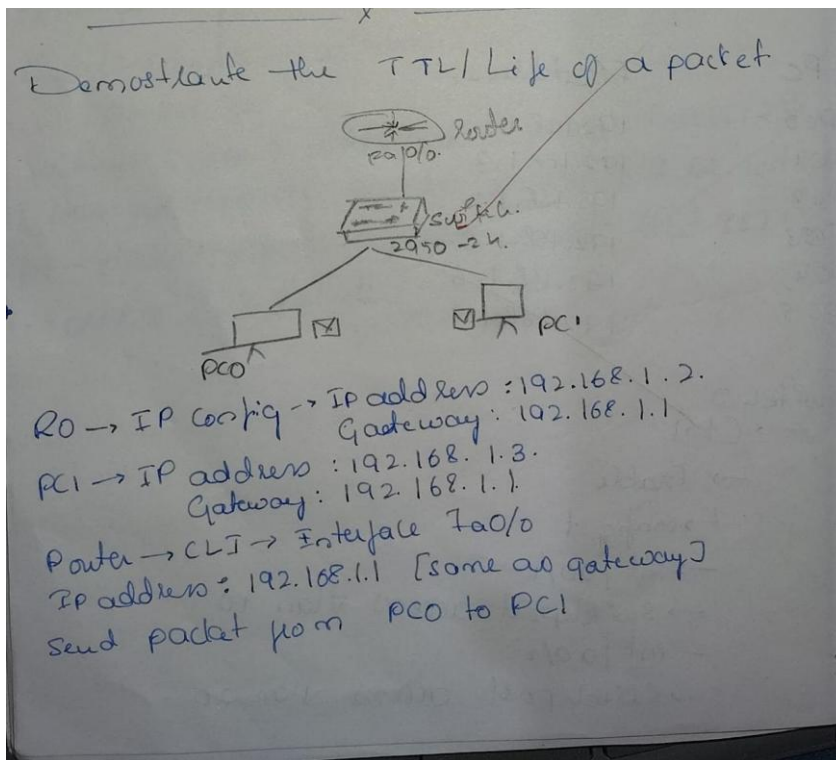 x
Demostrante the TTL/ Life of a packet
Router
Fa0/0.
Switch.
2950-24.
PC0
PC1
R0 → IP Config → Ip address : 192.168.1.2.
Gateway : 192.168.1.1
PC1 → IP address : 192.168.1.3.
Gateway : 192.168.1.1.
Router → CLI → Interface Fa0/0
Ip address : 192.168.1.1 [same as gateway]
Send packet from PC0 to PC1